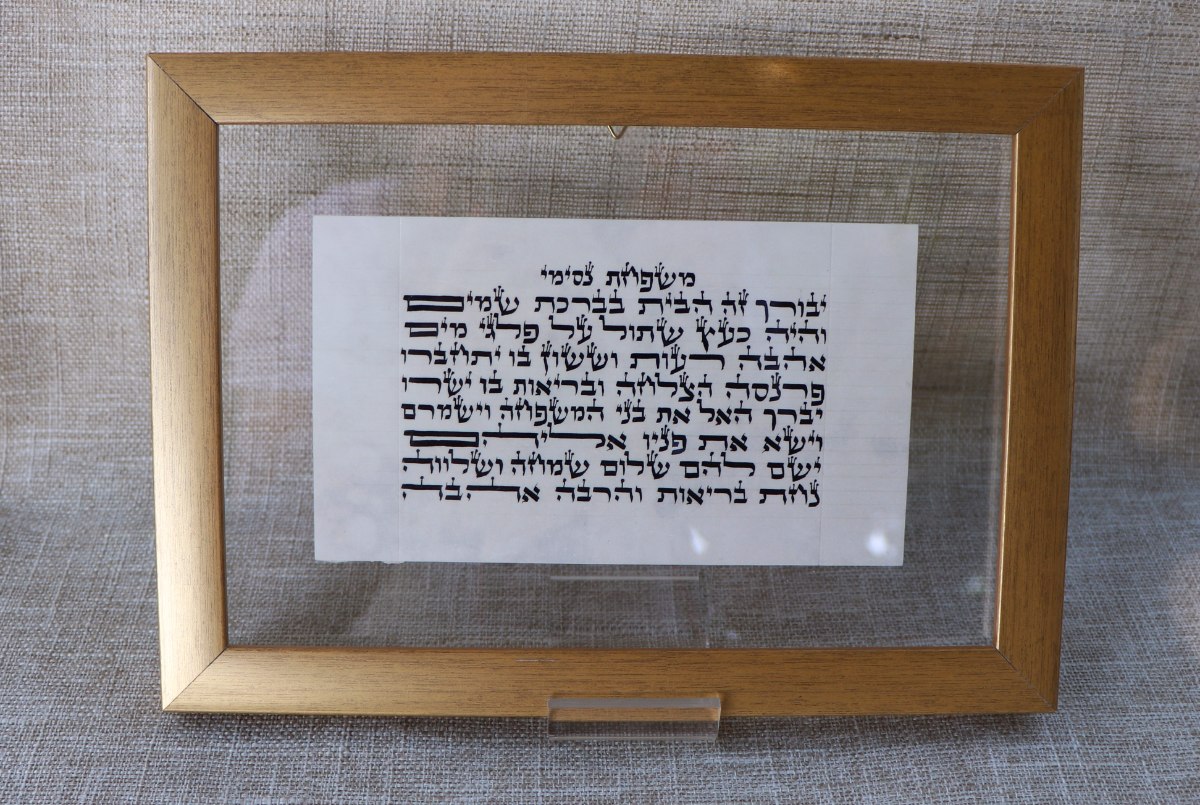 משפחת נסימי
יבורך זה הבית בברכת שמים
והיה כעץ שתול על פלגי מים
אהבה רעות וששון בו יתחברו
פרנסה הצלחה ובריאות בו ישרו
יברך האל את בני המשפחה וישמרם
וישא את פניו אליהם
ישם להם שלום שמחה ושלווה
נחת בריאות והרבה אהבה